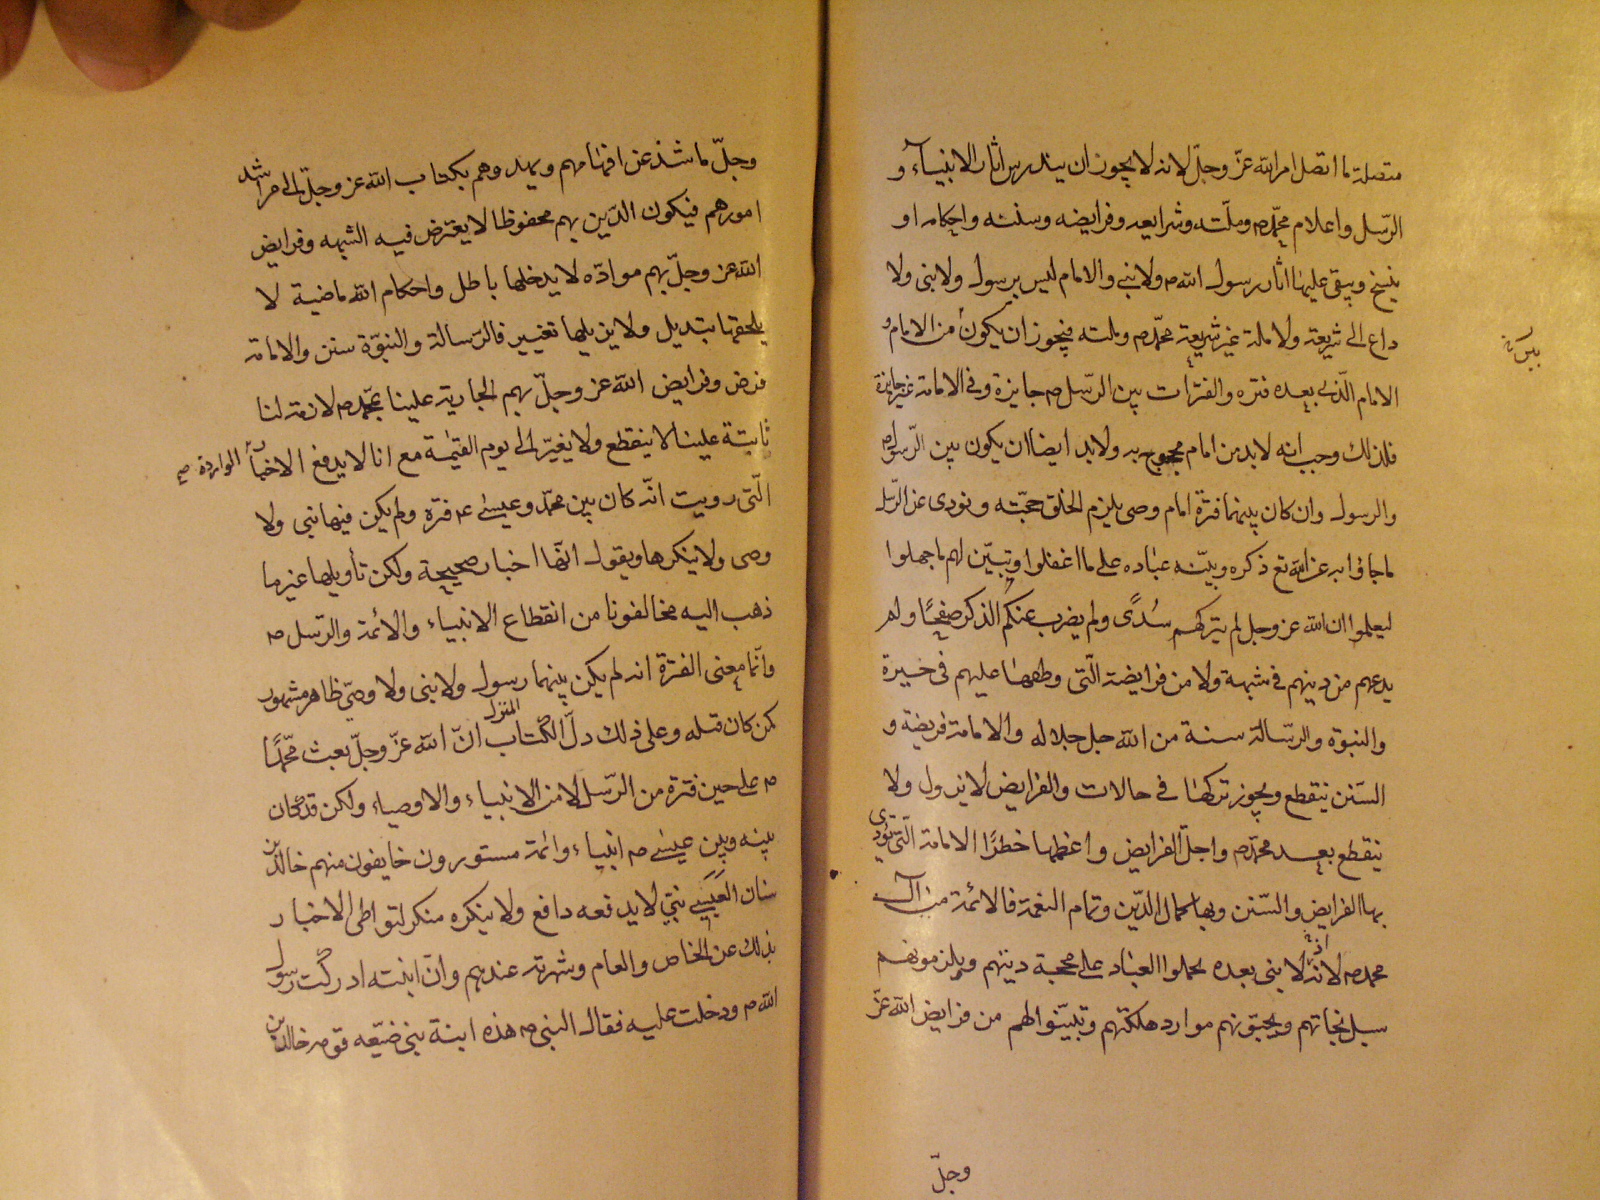 متصلة ما اتصل امر الله عزّ وجلّ لانه لا يجوز ان يندرس اثار الانبيآء و
الرّسل واعلام محمّد ص وملّته وشرايعه وفرايضه وسننه واحكامه او
ينسخ ويبقى عليها اثار رسول الله ص ولا نبى والامام ليس برسول ولا نبى ولا
داع الى شريعة ولا ملة غير شريعة محمّد ص وملته فيجوز ان يكون من الامام و
الامام الّذى بعده فتره والفترات بين الرّسل ص جايزة وفى الامامة غير جايزة
فلذلك وجب انه لابد من امام محجوج به ولابد ايضا ان يكون بين الرّسول ص
والرسول وان كان بينهما فترة امام وصى يلزم الخلق حجّته ويؤدى عن الرّسل
ما جاؤا به عن الله تع ذكره وينبّه عباده على ما اغفلوا ويبيّن لهم ما جهلوا
ليعلموا ان الله عز وجل لم يتركهم سُدًى ولم يضرب عنكم الذكر صفحًا ولم
يدعهم من دينهم فى شبهة ولا من فرايضه الّتى وظفها عليهم فى حيرة
والنبوّه والرّسالة سنة من الله جل جلاله والامامة فريضة و
السّنن ينقطع ويجوز تركها فى حالات والفرايض لا يزول ولا
ينقطع بعد محمّد ص واجلّ الفرايض واعظمها خطرًا الامامة الّتى تؤدى
بها الفرايض والسّنن وبها كمال الدّين وتمام النعمة فالائمة من آل
محمد ص لانّه لا نبى بعده ليحملوا العباد على محجة دينهم ويلزمونهم
سبل نجاتهم ويجنّبونهم موارد هلكتهم ويبيّنوا لهم من فرايض الله عزّ
وجلّ
وجلّ ما شذ عن افهامهم ويهدوهم بكتاب الله عز وجلّ الى مراشد
امورهم فيكون الدّين بهم محفوظا لا يعترض فيه الشبهه وفرايض
الله عز وجلّ بهم موادّه لا يدخلها باطل واحكام الله ماضية لا
يلحقها تبديل ولا يزيلها تغيير فالرّسالة والنبوّة سنن والامامة
فرض وفرايض الله عز وجلّ بهم الجارية علينا بمحمّد ص لازمة لنا
ثابتة علينا لا ينقطع ولا يغيّر الى يوم القيمة مع انا لا يدفع الاخبار الواردة
الّتى رويت انّه كان بين محمّد وعيسى ع فترة ولم يكن فيها نبى ولا
وصى ولا ينكرها ويقول انّها اخبار صحيحة ولكن تأويلها غير ما
ذهب اليه مخالفونا من انقطاع الانبياء والائمة والرّسل ص
وانّما معنى الفترة انه لم يكن بينهما رسول ولا نبى ولا وصىّ ظاهر مشهور
كمن كان قبله وعلى ذلك دلّ الكتاب المنزل انّ الله عزّ وجلّ بعث محمّدًا
ص على حين فترة من الرّسل لا من الانبياء والاوصياء ولكن قد كان
بينه وبين عيسى ص انبياء وائمة مستورون خايفون منهم خالد بن
سنان العَبَسى نبىّ لا يدفعه دافع ولا ينكره منكر لتواطى الاخبار
بذلك عن الخاص والعام وشهرته عندهم وانّ ابنته ادركت رسول
الله ص ودخلت عليه فقال النبى ص هذه ابنة نبى ضيّعه قومه خالد بن